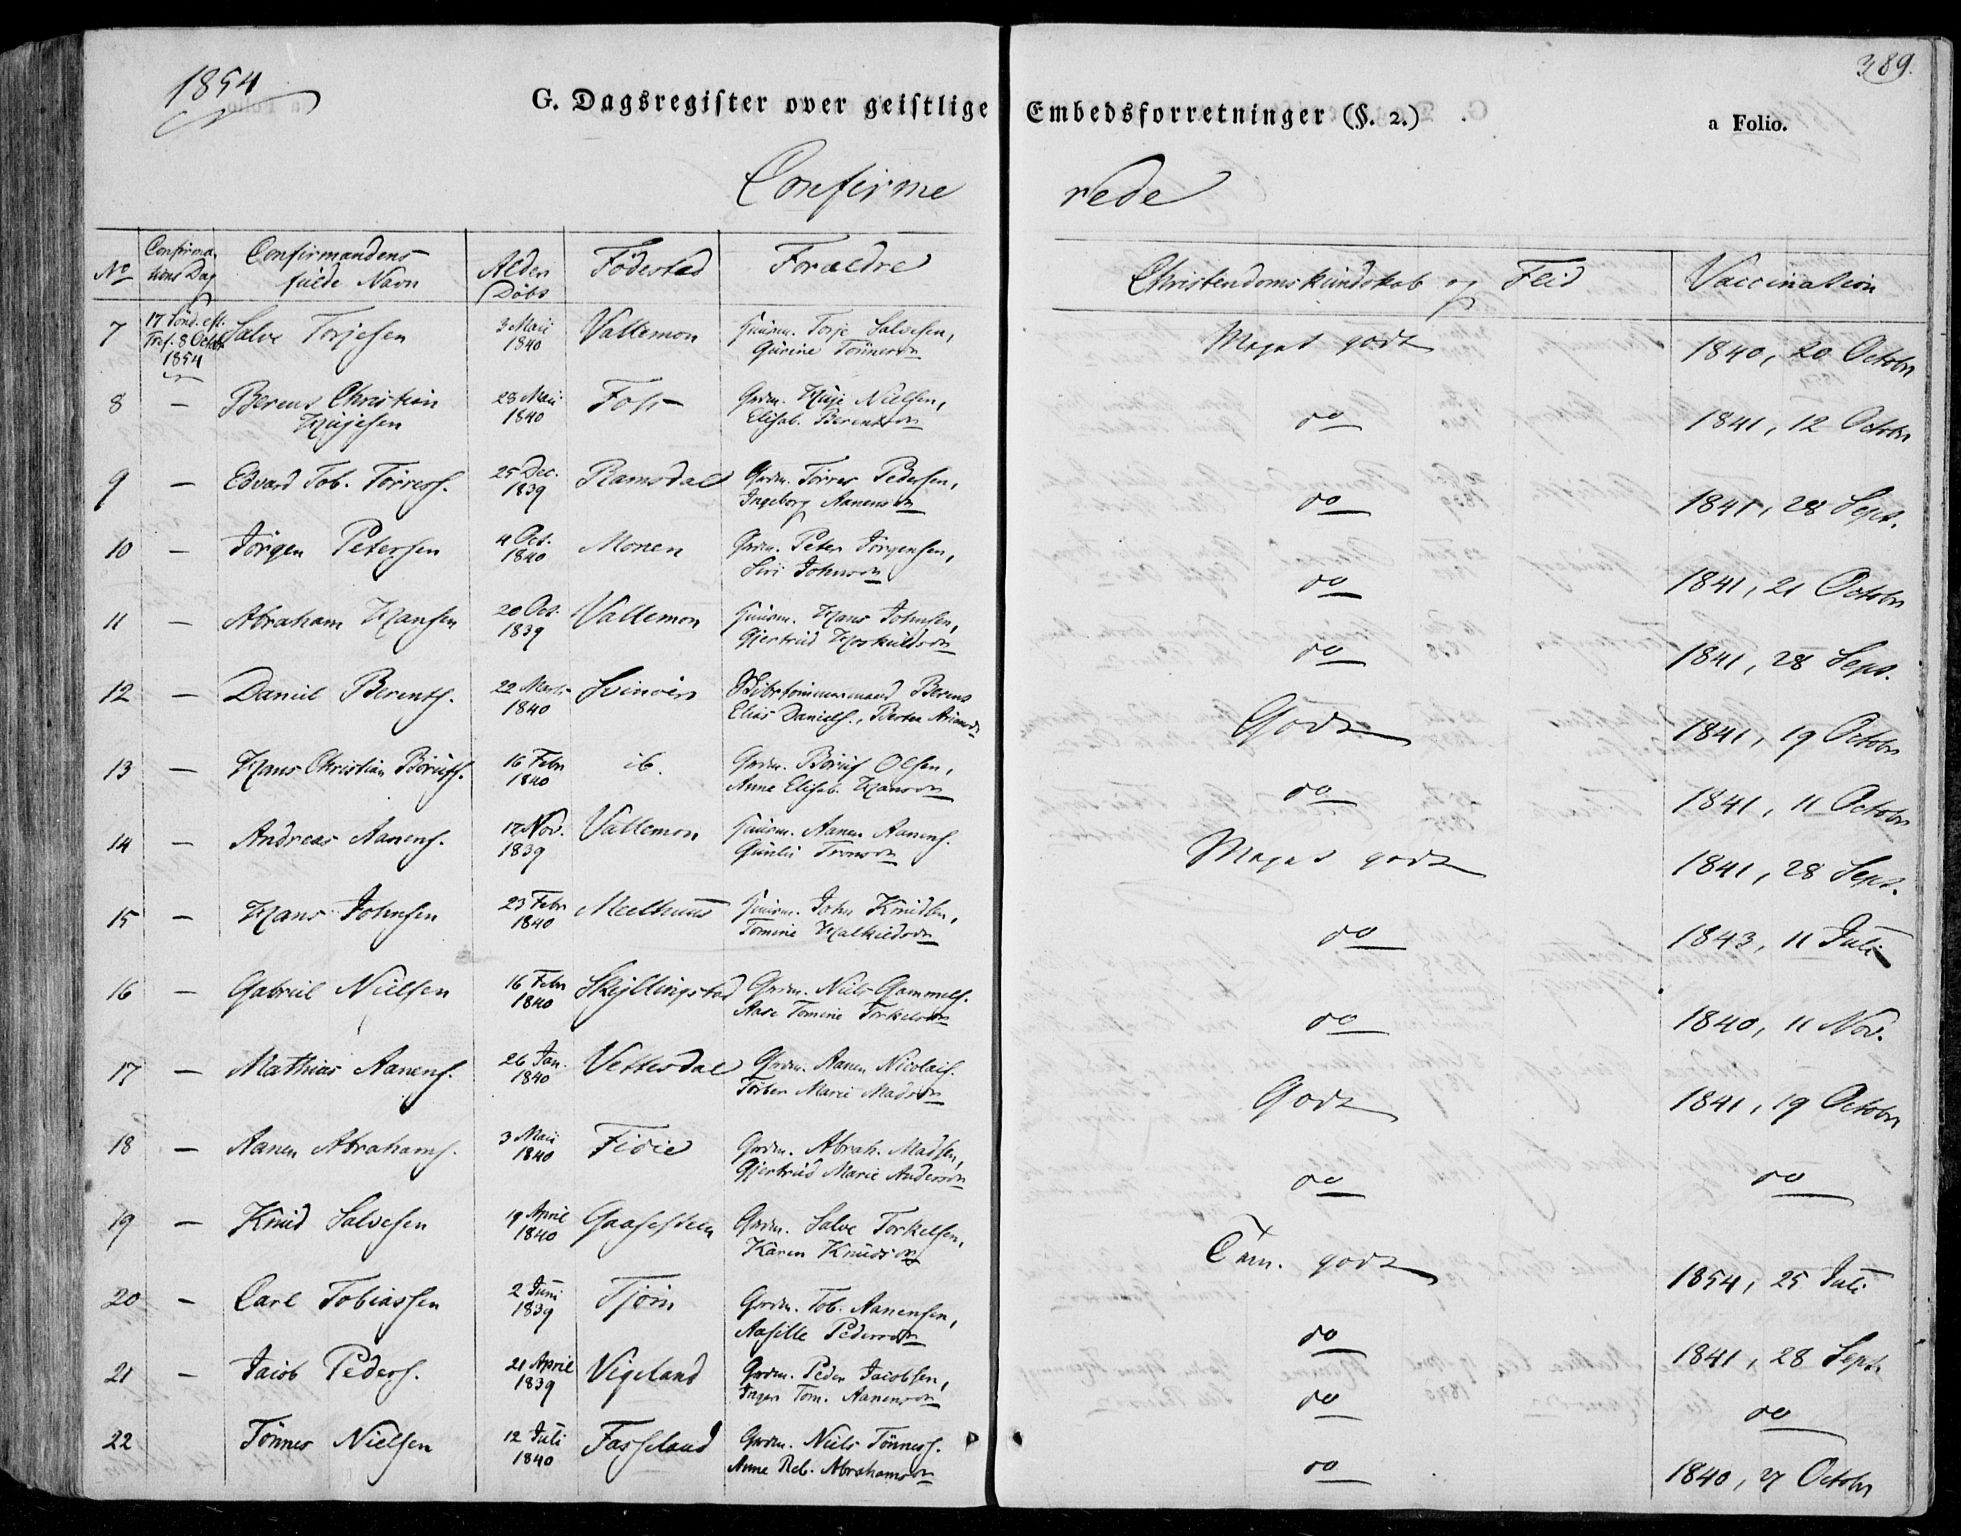 1854
389.
G. Dagsregister over geistlige Embedsforretninger (§. 2.)
a Folio.
Confirmerede
No | Confirmations Dag | Confirmandens fulde Navn | Alder Döbs | Födested | Forældre | Christendomskundskab og Flid | Vaccination
7 | 17 Sönd. eft. Tref. 8 Octob 1854 | Salve Torjesen | 3 Maii 1840 | Vattemon | Huusm. Torje Salvesen, Gurine Tönnesdn | Meget godt | 1840, 20 Octobr
8 | — | Berent Christian Hujesen | 28 Maii 1840 | Foss | Grdm. Huje Nielsen, Elisab. Berentsdn | do | 1841, 12 Octobr
9 | — | Edvard Tob. Törress. | 25 Dec. 1839 | Ramsdal | Grdm. Törres Pedersen, Ingeborg Aanensdn | do | 1841, 28 Sept.
10 | — | Jörgen Petersen | 4 Oct. 1840 | Monen | Grdm. Peter Jörgensen, Siri Johnsdn | do | 1841, 21 Octobr
11 | — | Abraham Hansen | 20 Oct. 1839 | Vattemon | Huusm. Hans Johnsen, Gjertrud Hoskuldsdn | do | 1841, 28 Sept.
12 | — | Daniel Berents. | 22 Mart. 1840 | Svinöer | Skibstömmermand Berent Elias Daniels., Berthe | Godt | 1841, 19 Octobr
13 | — | Hans Christian Börufs. | 16 Febr 1840 | ib. | Grdm. Böruf Olsen, Anne Elisab. Hansdn | do | 1841, 11 Octobr
14 | — | Andreas Aanens. | 17 Nov. 1839 | Vattemon | Huusm. Aanen Aanens. Gunlu Tronsdn | Meget godt | 1841, 28 Sept.
15 | — | Hans Johnsen | 23 Febr 1840 | Meelhuus | Huusm. John Knudsen, Tomine | do | 1843, 11 Juli
16 | — | Gabriel Nielsen | 16 Febr 1840 | Skjellingstad | Grdm. Niels Gammels. Aase Tomine Torkelsdn | do | 1840, 11 Nov.
17 | — | Mathias Aanens. | 26 Jan. 1840 | Vettesdal | Grdm. Aanen Nicolais. Torber Marie Madsdn | Godt | 1841, 19 Octobr
18 | — | Aanen Abrahams. | 3 Maii 1840 | Fidie | Grdm. Abrah. Madsen, Gjertrud Marie Andersdn | do | do
19 | — | Knud Salvesen | 19 April 1840 | Gaasesteen | Grdm. Salve Torkelsen, Karen Knudsdn | Tem. godt | 1854, 25 Juli
20 | — | Carl Tobiassen | 2 Juni 1839 | Tjöm | Grdm. Tob. Aanensen, Aasille Pedersdn | do | 1841, 28 Sept.
21 | — | Jacob Peders. | 21 April 1839 | Vigeland | Grdm. Peder Jacobsen, Inger Tom. Aanensdn | do | do
22 | Tönnes Nielsen | 12 Juli 1840 | Fasseland | Grdm. Niels Tönness. Anne Reb. Abrahamsdn | do | 1840, 27 Octobr